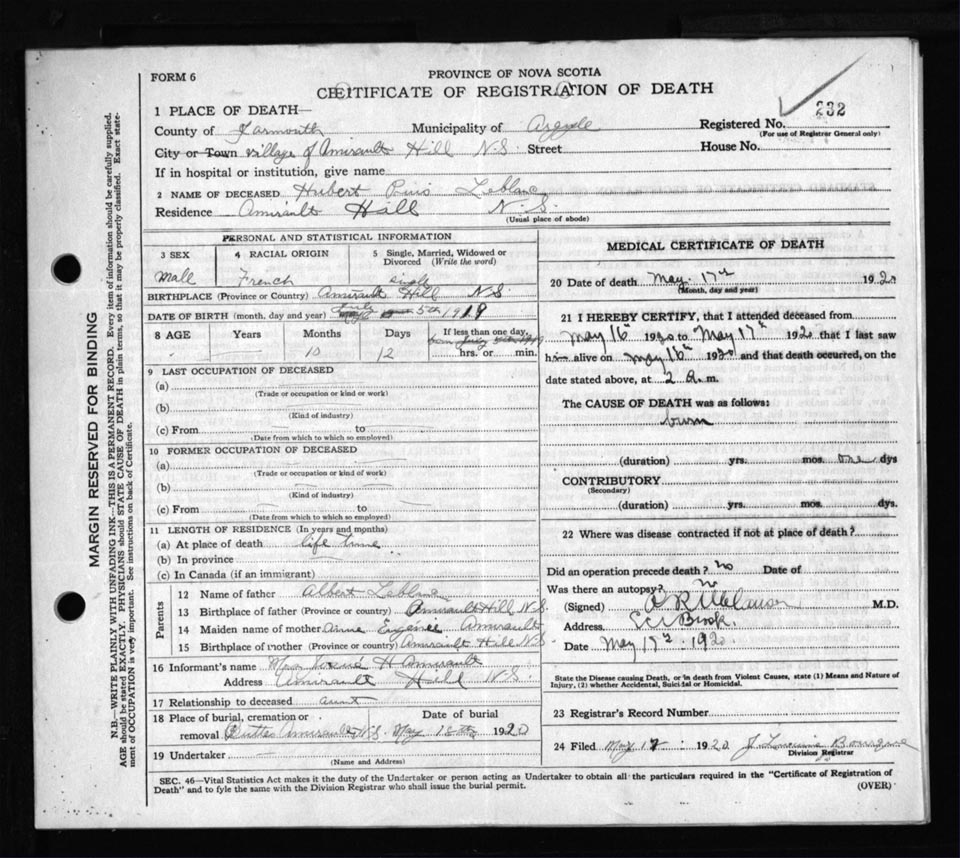 FORM 6
PROVINCE OF NOVA SCOTIA
CERTIFICATE OF REGISTRATION OF DEATH
232
1 PLACE OF DEATH—
County of Yarmouth Municipality of Argyle Registered No.
(For use of Registrar General only)
City or Town village of Amirault Hill N.S Street House No.
If in hospital or institution, give name
2 NAME OF DECEASED Hubert Pius Leblanc
Residence Amirault Hill N.S.
(Usual place of abode)
MARGIN RESERVED FOR BINDING
N.B.—WRITE PLAINLY WITH UNFADING INK—THIS IS A PERMANENT RECORD. Every item of information should be carefully supplied.
AGE should be stated EXACTLY. PHYSICIANS should STATE CAUSE OF DEATH in plain terms, so that it may be properly classified. Exact state-
ment of OCCUPATION is very important. See instructions on back of Certificate.
PERSONAL AND STATISTICAL INFORMATION
3 SEX 4 RACIAL ORIGIN 5 Single, Married, Widowed or
Divorced (Write the word)
Male French single
BIRTHPLACE (Province or Country) Amirault Hill N.S
DATE OF BIRTH (month, day and year) July 5th 1919
8 AGE Years Months Days If less than one day,
10 12 hrs. or min.
9 LAST OCCUPATION OF DECEASED
(a)
(Trade or occupation or kind or work)
(b)
(Kind of industry)
(c) From to
(Date from which to which so employed)
10 FORMER OCCUPATION OF DECEASED
(a)
(Trade or occupation or kind of work)
(b)
(Kind of industry)
(c) From to
(Date from which to which so employed)
11 LENGTH OF RESIDENCE (In years and months)
(a) At place of death life time
(b) In province
(c) In Canada (if an immigrant)
Parents
12 Name of father Albert Leblanc
13 Birthplace of father (Province or country) Amirault Hill N.S.
14 Maiden name of mother Anne Eugenie Amirault
15 Birthplace of mother (Province or country) Amirault Hill N.S
16 Informant's name Mrs H Amirault
Address Amirault Hill N.S.
17 Relationship to deceased aunt
18 Place of burial, cremation or Date of burial
removal Buttes Amirault N.S. May 18th 1920
19 Undertaker
(Name and Address)
MEDICAL CERTIFICATE OF DEATH
20 Date of death May 17th 1920
(Month, day and year)
21 I HEREBY CERTIFY, that I attended deceased from
May 16th 1920 to May 17th 1920 that I last saw
him alive on May 16th 1920 and that death occurred, on the
date stated above, at 2 a.m.
The CAUSE OF DEATH was as follows:
burn
(duration) yrs. mos. one dys
CONTRIBUTORY
(Secondary)
(duration) yrs. mos. dys.
22 Where was disease contracted if not at place of death?
Did an operation precede death? no Date of
Was there an autopsy? no
(Signed) M.D.
Address Brook.
Date May 17th 1920
State the Disease causing Death, or in death from Violent Causes, state (1) Means and Nature of
Injury, (2) whether Accidental, Suicidal or Homicidal.
23 Registrar's Record Number
24 Filed May 17 1920
Division Registrar
SEC. 46—Vital Statistics Act makes it the duty of the Undertaker or person acting as Undertaker to obtain all the particulars required in the "Certificate of Registration of
Death" and to fyle the same with the Division Registrar who shall issue the burial permit. (OVER)